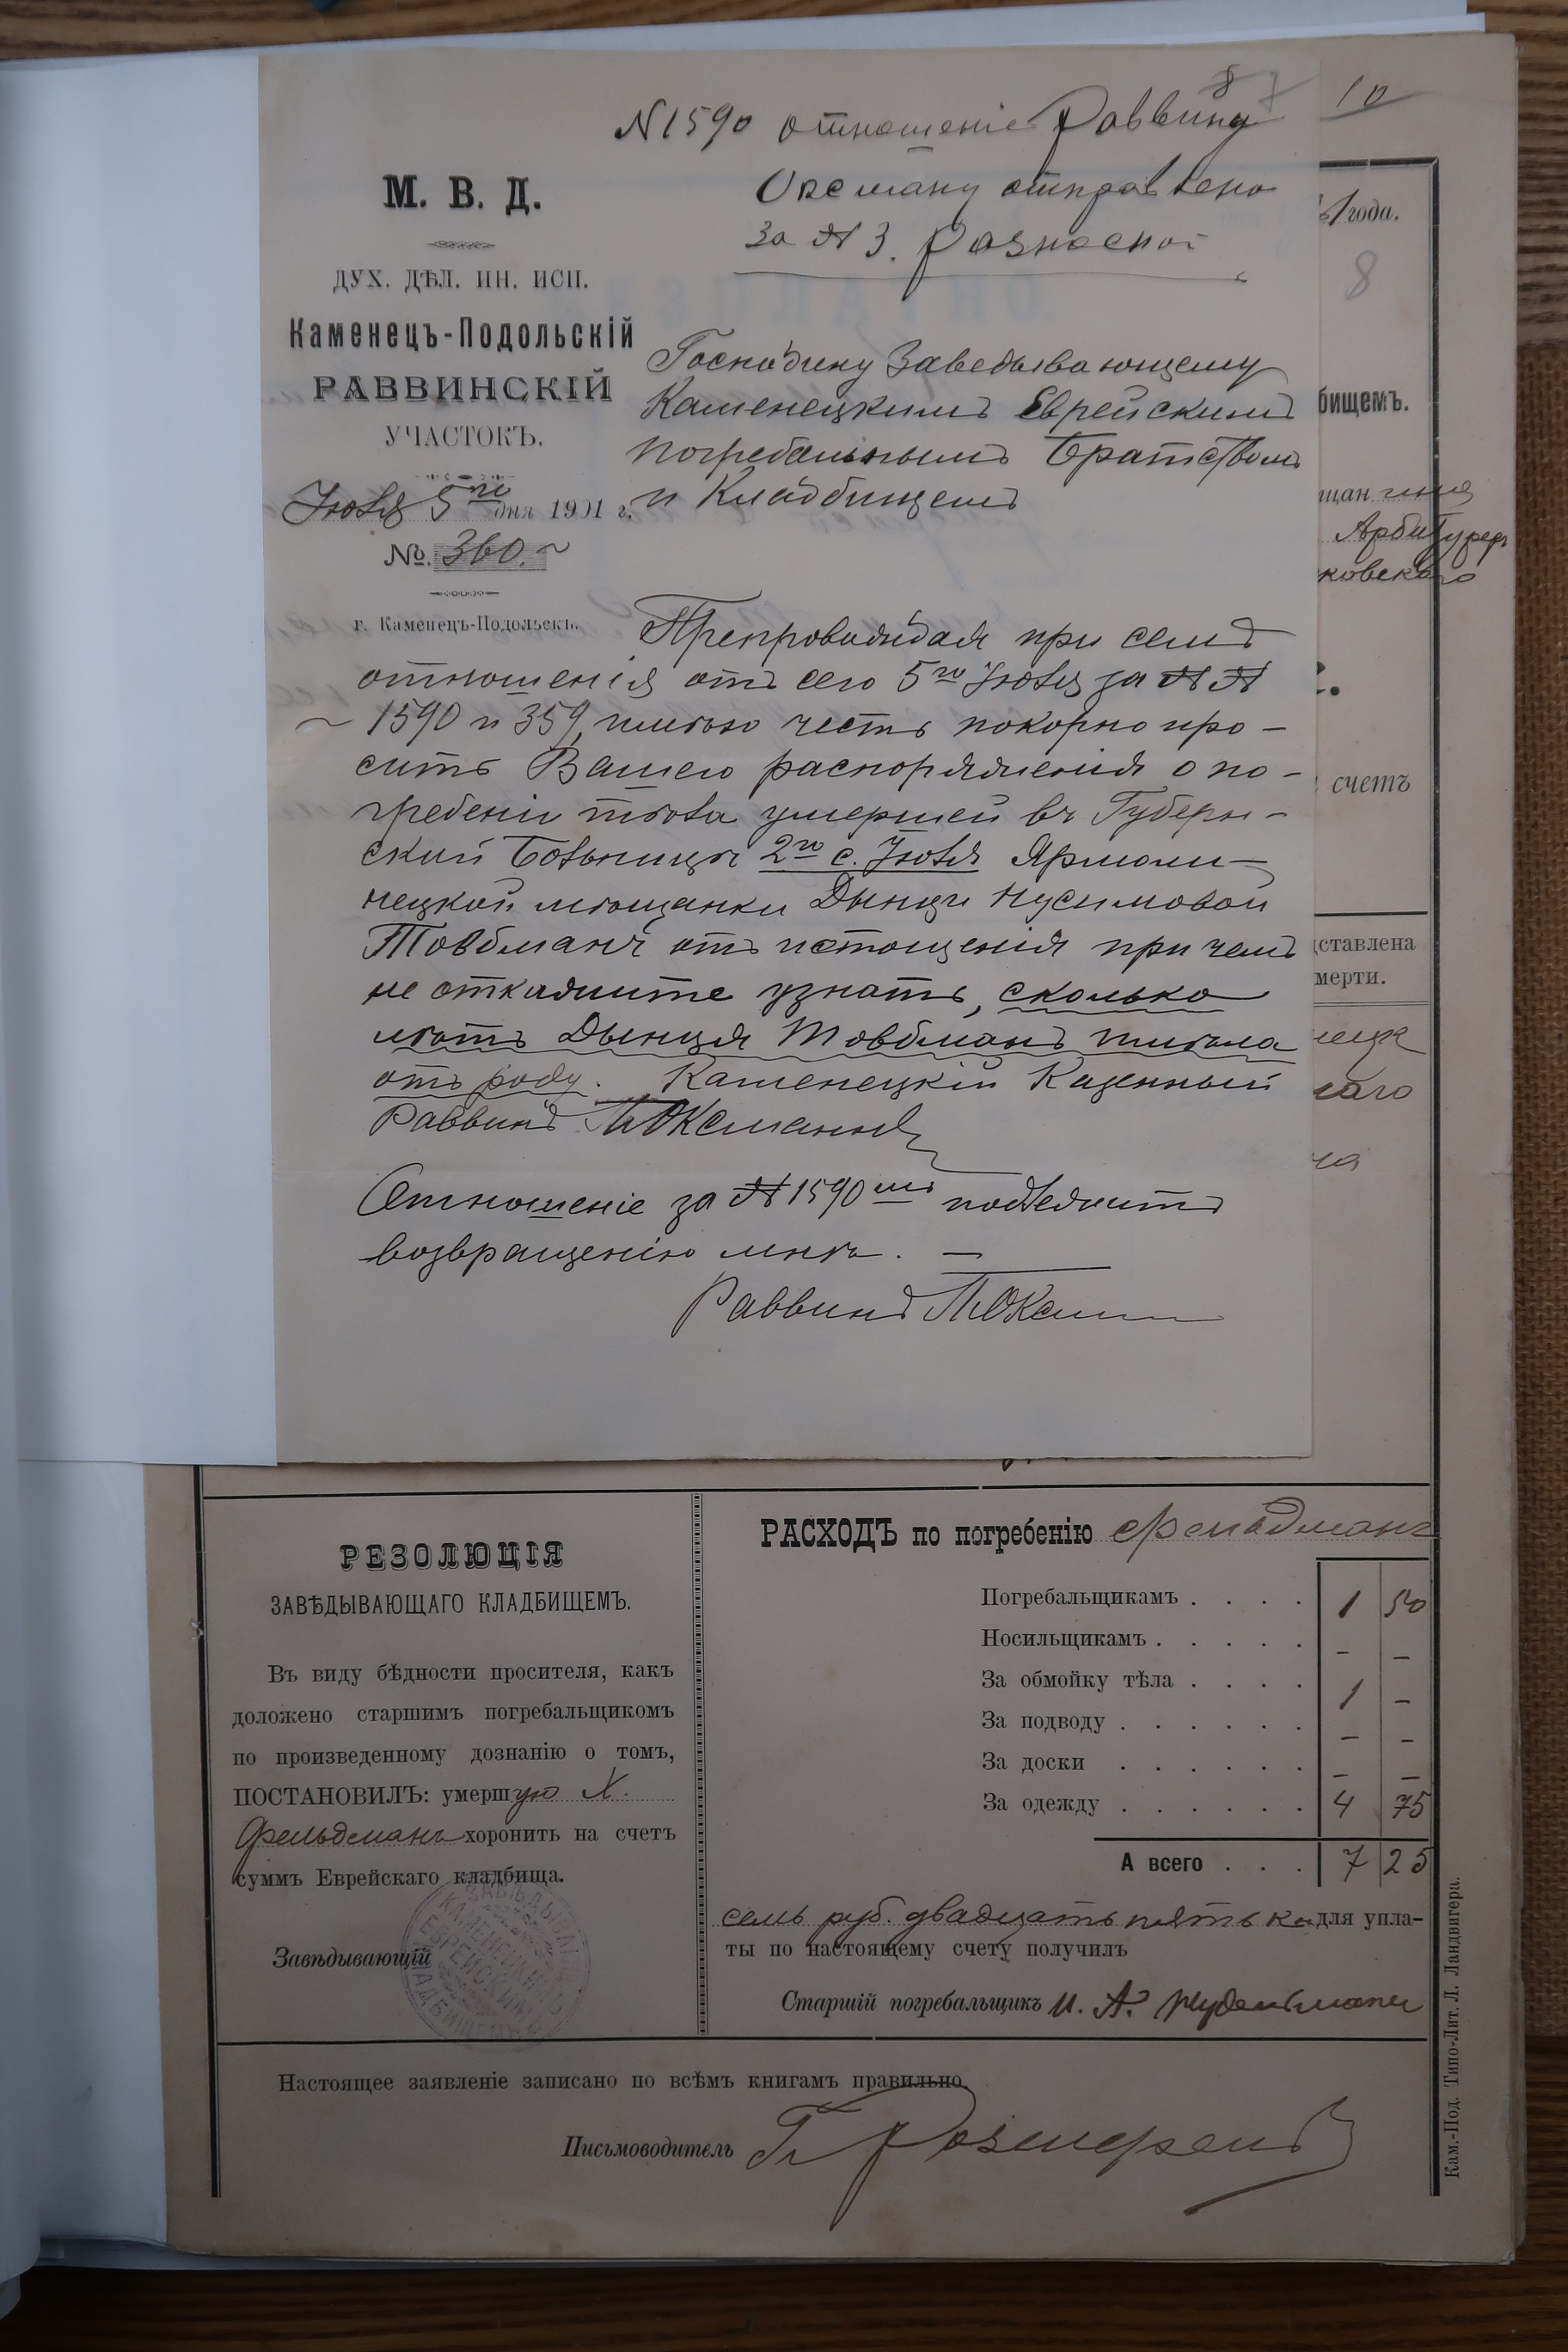 8 7
10
№ 1590 отношеніе Раввину
Оксману отправлено
за № 3. разносной
М. В. Д.
ДУХ. ДѢЛ. ИН. ИСП.
Каменецъ-Подольскій
РАВВИНСКІЙ
УЧАСТОКЪ.
Іюля 5го дня 1901 г.
№. 360.
г. Каменецъ-Подольскъ.
Господину Заведывающему
Каменецкимъ Еврейскимъ
погребальнымъ Братствомъ
и Кладбищемъ
Препровождая при семъ
отношенія отъ сего 5го Іюля за № №
1590 и 359, имѣю честь покорно про-
сить Вашего распоряженія о по-
гребеніи тѣла умершей въ Губерн-
ской Больницѣ 2го с. Іюля Ярмоли-
нецкой мѣщанки Дынци Нусимовой
Товбманъ отъ истощенія при чемъ
не откажите узнать, сколько
лѣтъ Дынця Товбманъ имѣла
отъ роду. Каменецкій Казенный
Раввинъ Оксманъ
Отношеніе за № 1590мъ подлежитъ
возвращенію мнѣ. —
Раввинъ
1 года.
8
бищемъ.
щан
Арбитуреръ
ковского
счетъ
дставлена
мерти.
РЕЗОЛЮЦІЯ
ЗАВѢДЫВАЮЩАГО КЛАДБИЩЕМЪ.
Въ виду бѣдности просителя, какъ
доложено старшимъ погребальщикомъ
по произведенному дознанію о томъ,
ПОСТАНОВИЛЪ: умершую Х.
Фельдманъ хоронить на счетъ
суммъ Еврейскаго кладбища.
Завѣдывающій
ЗАВѢДЫВАЮЩ
КАМЕНЕЦКИМЪ
ЕВРЕЙСКИМЪ
КЛАДБИЩЕМЪ
РАСХОДЪ по погребенію Фельдманъ
Погребальщикамъ . . . . 1 50
Носильщикамъ . . . . . – –
За обмойку тѣла . . . . 1 –
За подводу . . . . . . – –
За доски . . . . . . – –
За одежду . . . . . . 4 75
А всего . . . 7 25
семь руб. двадцать пять ко для упла-
ты по настоящему счету получилъ
Старшій погребальщикъ И. А.
Настоящее заявленіе записано по всѣмъ книгамъ правильно.
Письмоводитель
Кам.-Под. Типо-Лит. Л. Ландвигера.